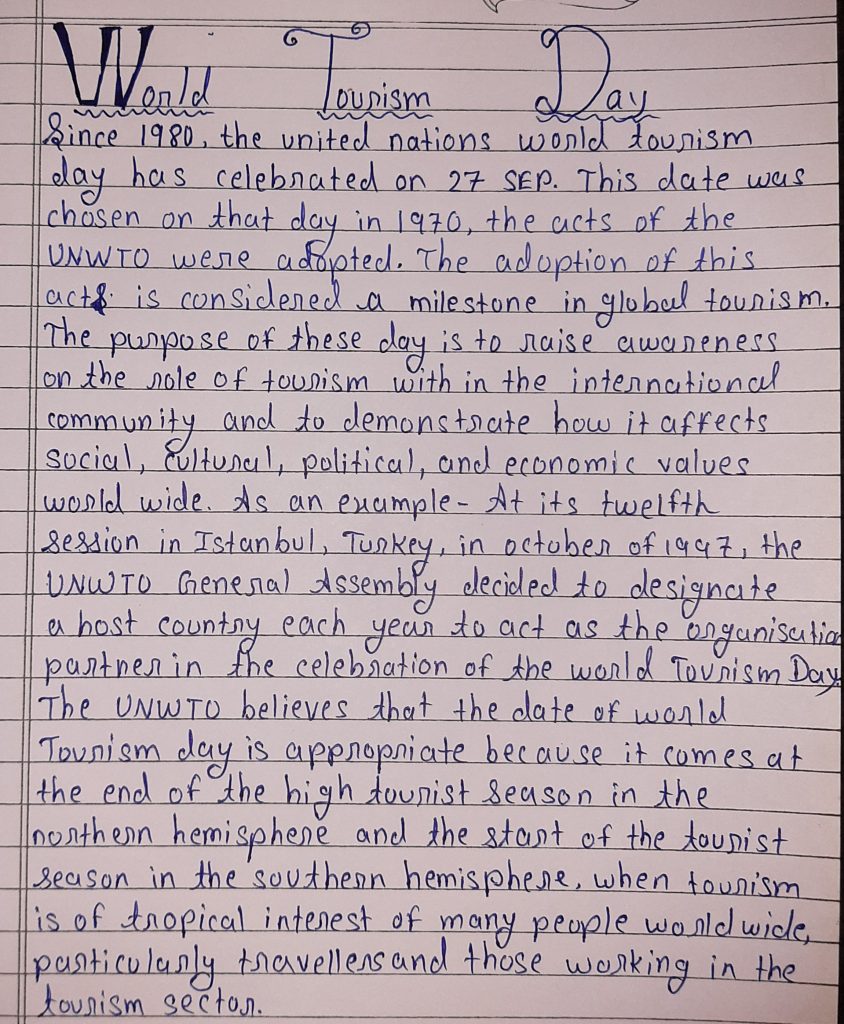 World Tourism Day
Since 1980, the united nations world tourism
day has celebrated on 27 SEP. This date was
chosen on that day in 1970, the acts of the
UNWTO were adopted. The adoption of this
acts is considered a milestone in global tourism.
The purpose of these day is to raise awareness
on the role of tourism with in the international
community and to demonstrate how it affects
social, cultural, political, and economic values
world wide. As an example- At its twelfth
session in Istanbul, Turkey, in october of 1997, the
UNWTO General Assembly decided to designate
a host country each year to act as the organisation
partner in the celebration of the world Tourism Day.
The UNWTO believes that the date of world
Tourism day is appropriate because it comes at
the end of the high tourist season in the
northern hemisphere and the start of the tourist
season in the southern hemisphere, when tourism
is of tropical interest of many people world wide,
particularly travellers and those working in the
tourism sector.